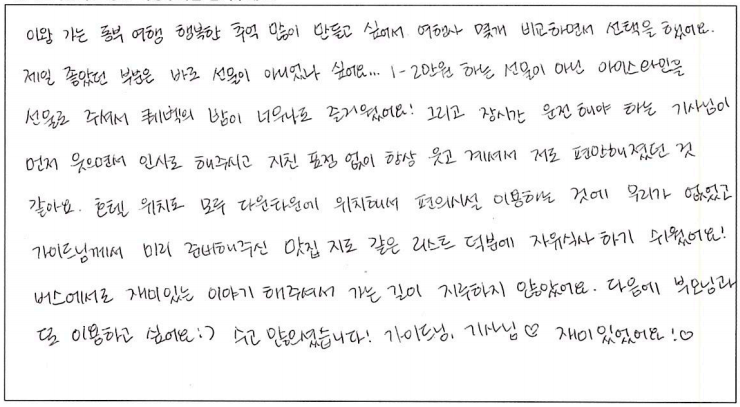 이왕 가는 동부 여행 행복한 추억 많이 만들고 싶어서 여행사 몇개 비교하면서 선택을 했어요.
제일 좋았던 부분은 바로 선물이 아니었나 싶어요... 1-2만원 하는 선물이 아닌 아이스와인을
선물로 주셔서 퀘벡의 밤이 너무나도 즐거웠어요! 그리고 장시간 운전해야 하는 기사님이
먼저 웃으면서 인사도 해주시고 지친 표정 없이 항상 웃고 계셔서 저도 편안해졌던 것
같아요. 호텔 위치도 모두 다운타운에 위치해서 편의시설 이용하는 것에 무리가 없었고
가이드님께서 미리 준비해주신 맛집 지도 같은 리스트 덕분에 자유식사 하기 쉬웠어요!
버스에서도 재미있는 이야기 해주셔서 가는 길이 지루하지 않았어요. 다음에 부모님과
또 이용하고 싶어요:) 수고 많으셨습니다! 가이드님, 기사님♡ 재미있었어요!♡